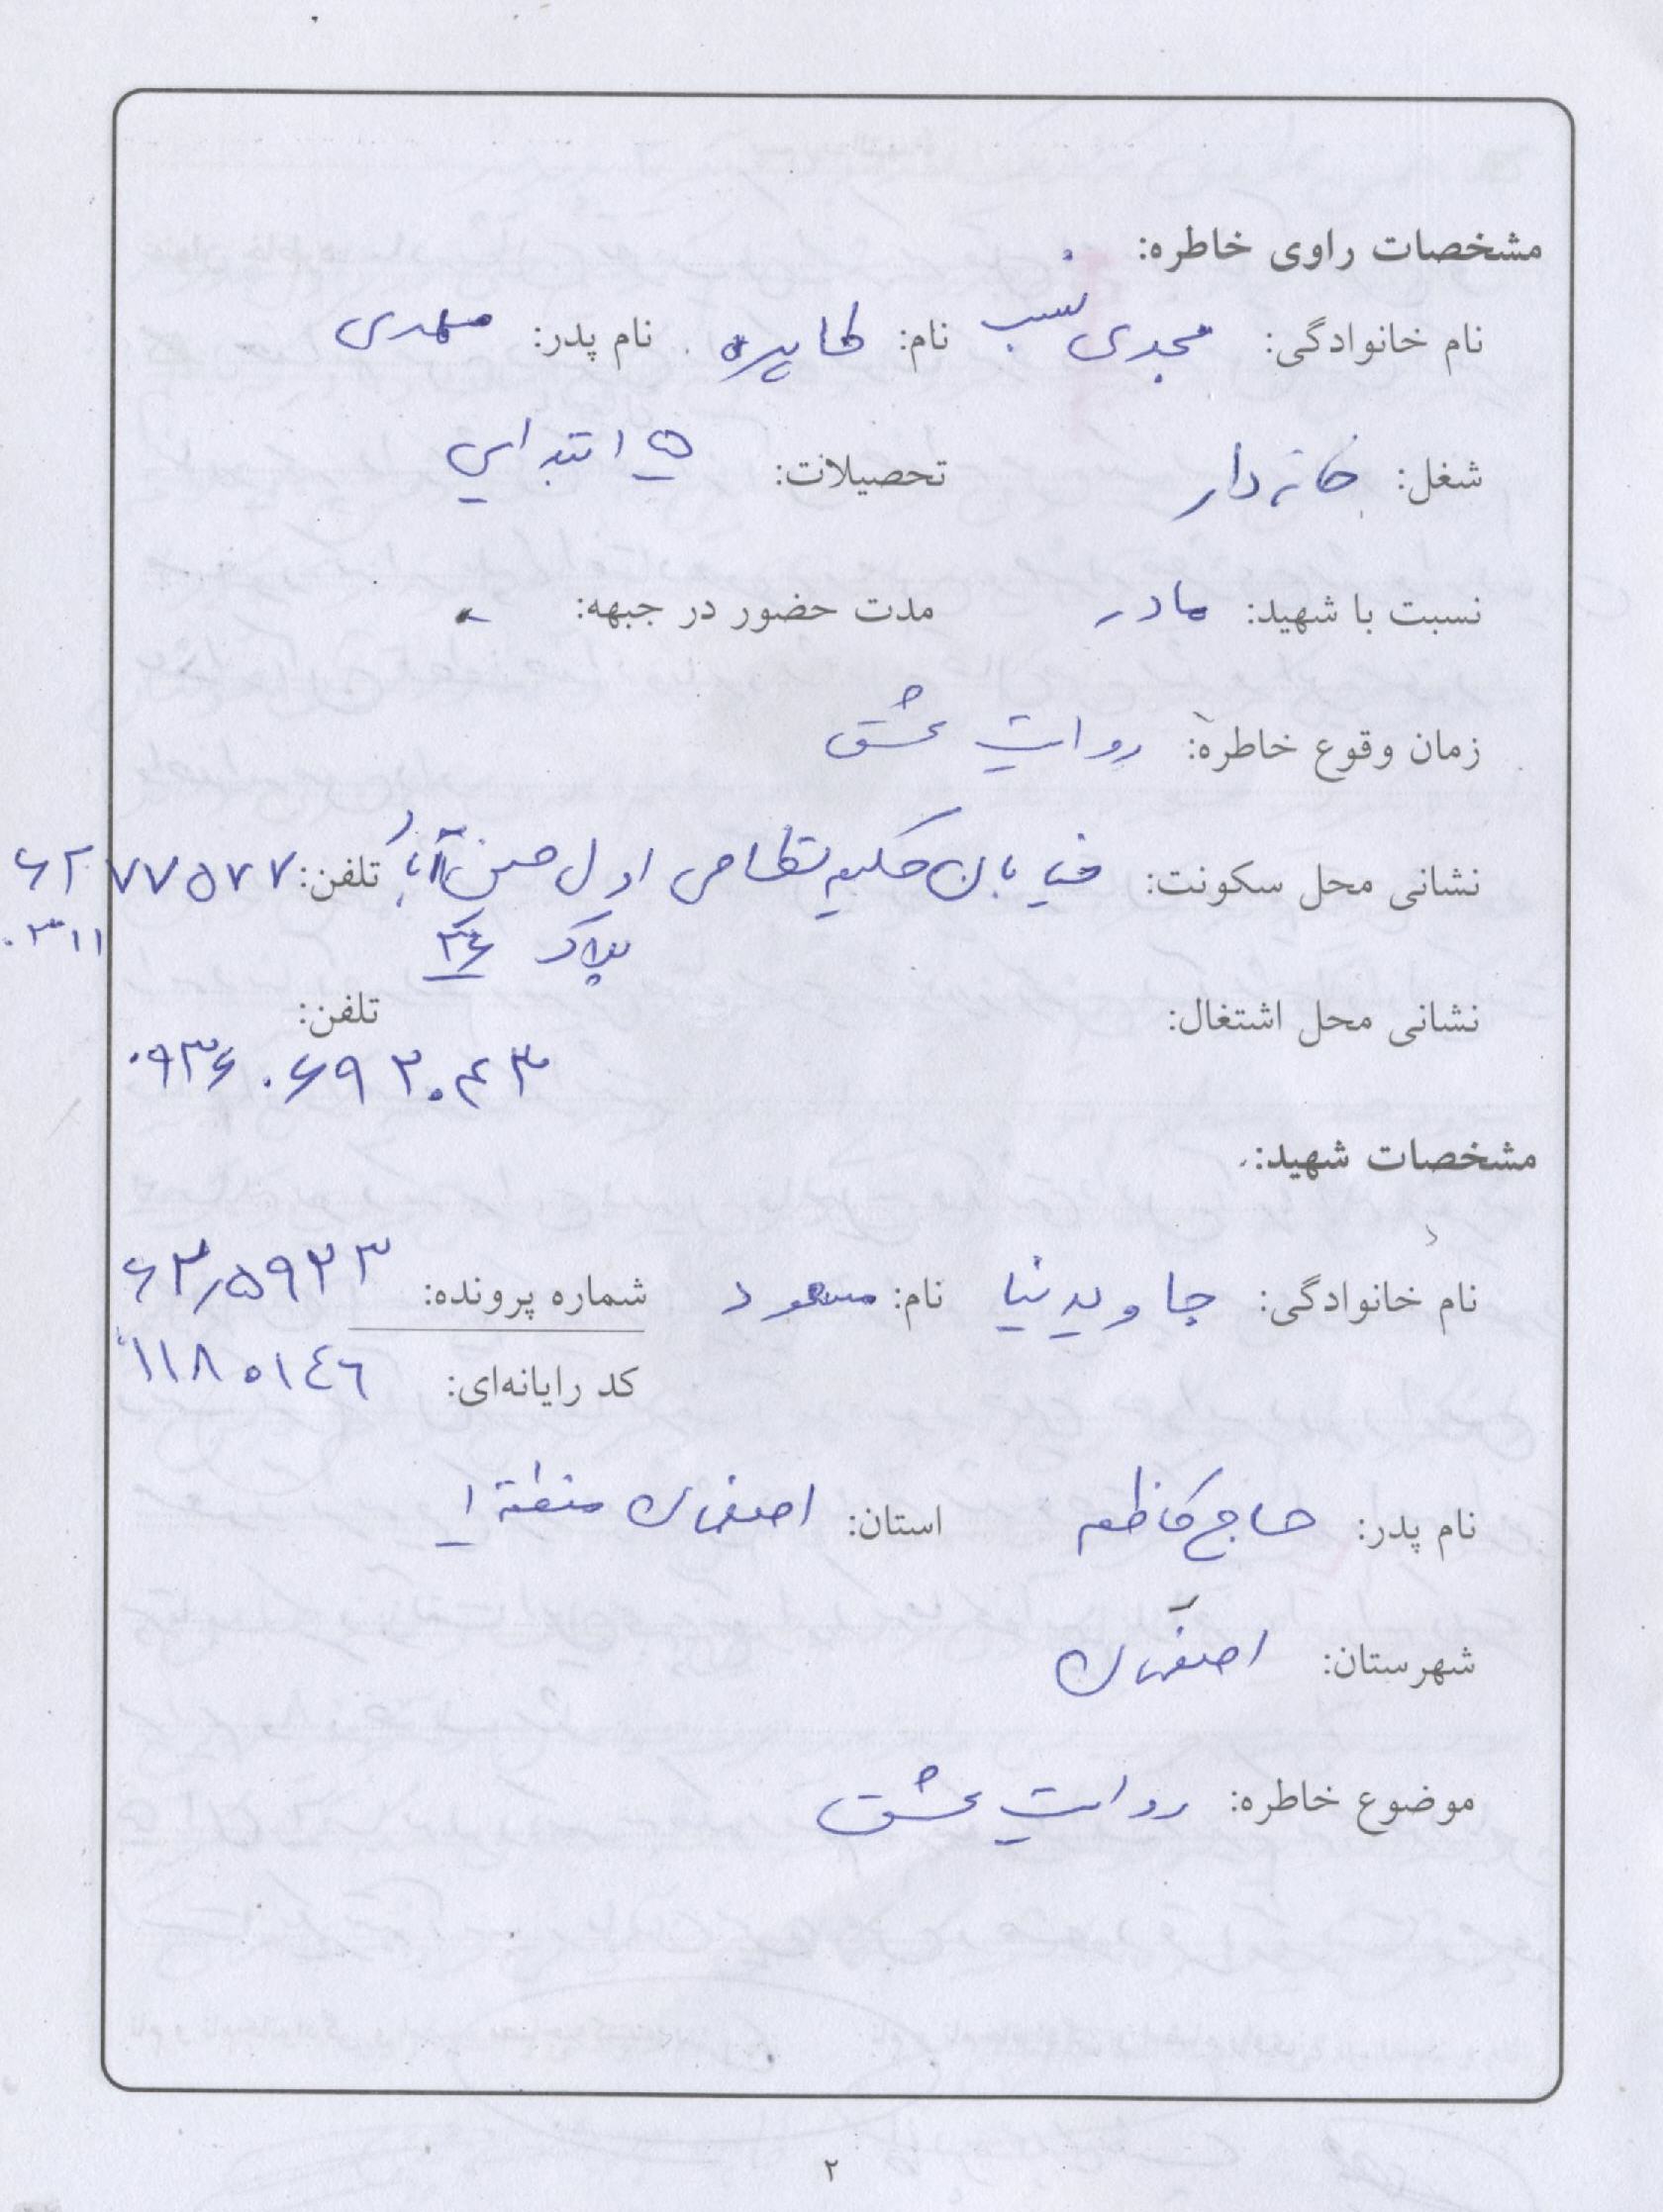 مشخصات راوی خاطره:
نام خانوادگی: مجدی نسب نام: طاهره نام پدر: مهدی
شغل: خانه دار تحصیلات: ۵ ابتدایی
نسبت با شهید: مادر مدت حضور در جبهه: -
زمان وقوع خاطره: روایت عشق
نشانی محل سکونت: خیابان حکیم نظامی اول حسن آباد تلفن: ۶۲۷۷۵۷۷
پلاک ۳۶ ۰۳۱۱
نشانی محل اشتغال: تلفن:
۰۹۳۶۰۶۹۲۰۴۳
مشخصات شهید:
نام خانوادگی: جاویدنیا نام: مسعود شماره پرونده: ۶۲/۵۹۲۳
کد رایانه‌ای: ۱۱۸۰۱٤٦
نام پدر: حاج کاظم استان: اصفهان منطقه ۱
شهرستان: اصفهان
موضوع خاطره: روایت عشق
۲